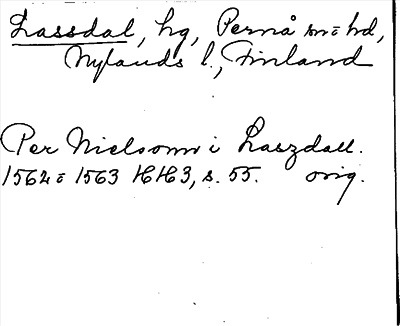 Lassdal, hg, Pernå sn = hd,
Nylands l., Finland
Per Nielsonn i Laszdall.
1562 = 1563 HH3, s. 55. orig.